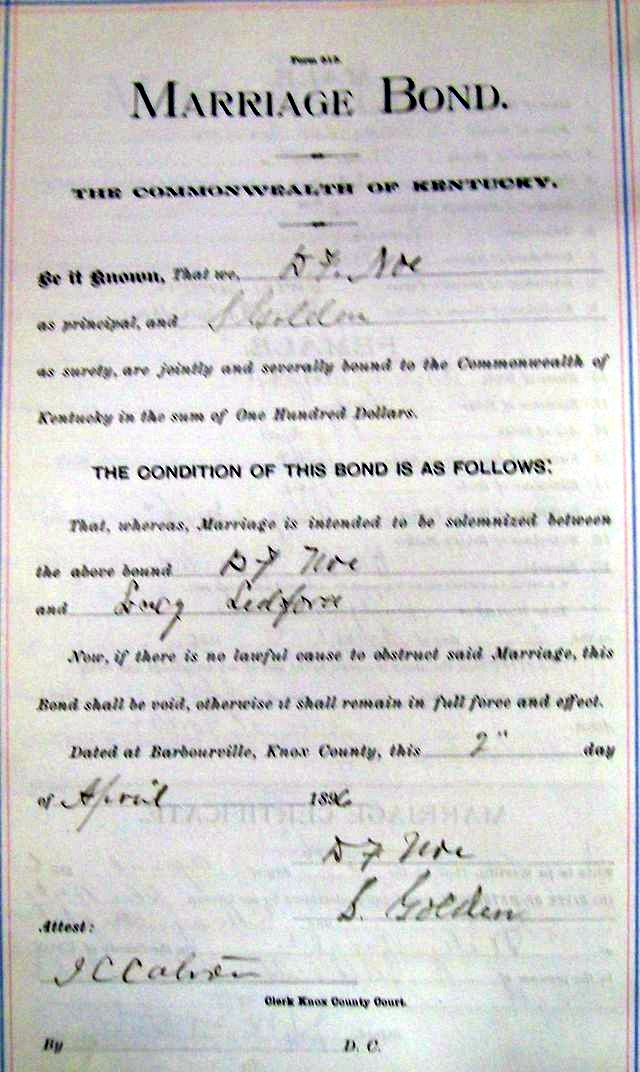 Form 313.
MARRIAGE BOND.
THE COMMONWEALTH OF KENTUCKY.
Be it Known, That we, D F. Noe
as principal, and S Golden
as surety, are jointly and severally bound to the Commonwealth of
Kentucky in the sum of One Hundred Dollars.
THE CONDITION OF THIS BOND IS AS FOLLOWS:
That, whereas, Marriage is intended to be solemnized between
the above bound D F Noe
and Lucy Ledford
Now, if there is no lawful cause to obstruct said Marriage, this
Bond shall be void, otherwise it shall remain in full force and effect.
Dated at Barbourville, Knox County, this 2" day
of April 1896
D F Noe
S. Golden
Attest:
J C C
Clerk Knox County Court.
By D. C.